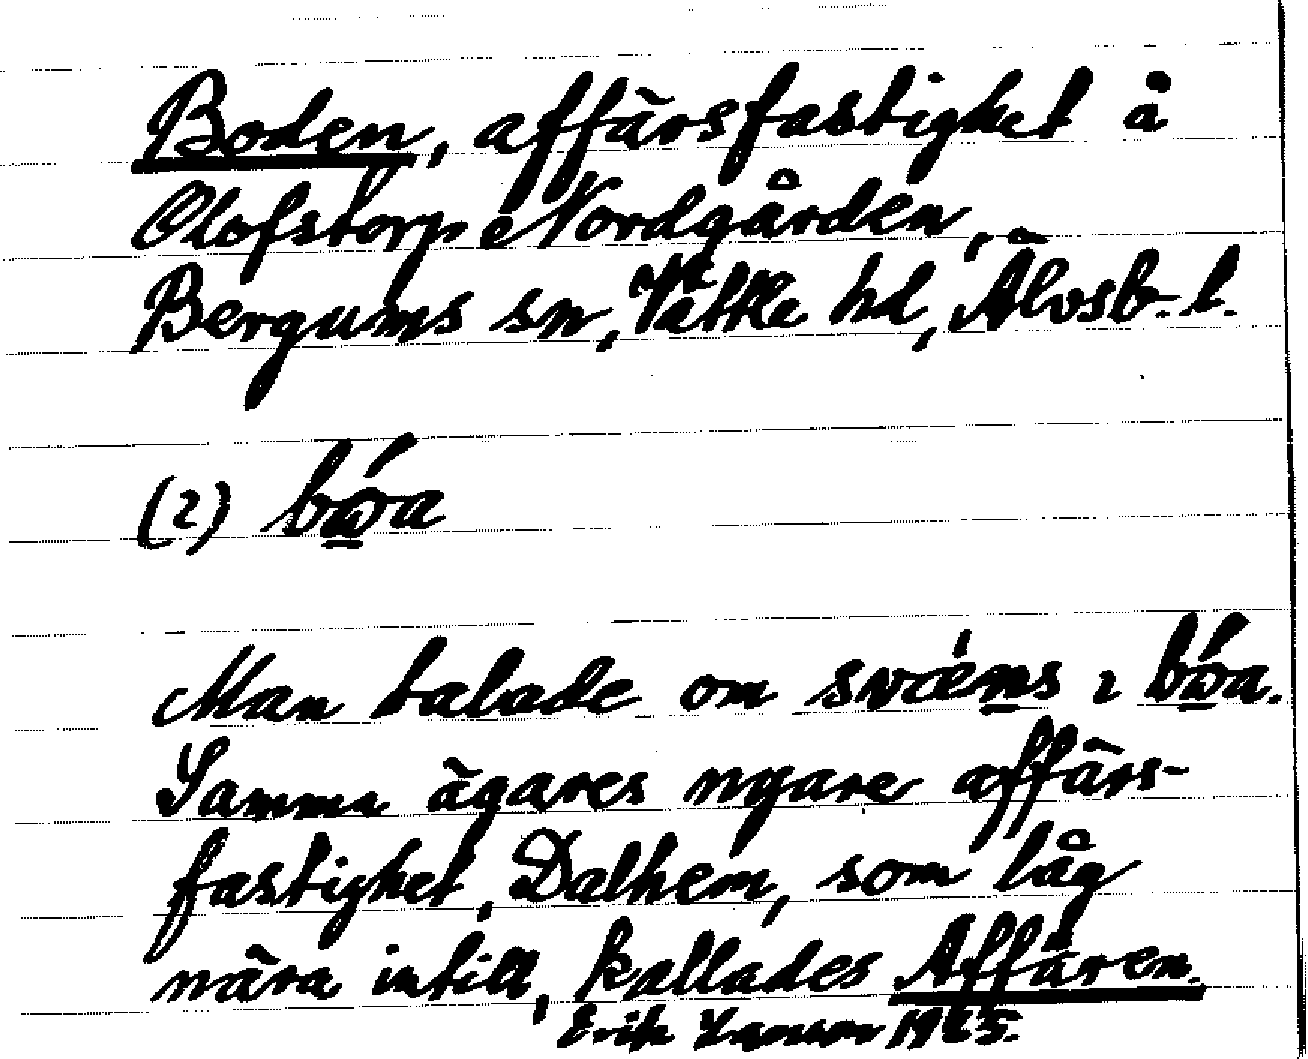 Boden, affärsfastighet å
Olofstorp Nordgården,
Bergums sn, Vättle hd, Älvsb. l.
(2) bώa
Man talade om svæ̀ns ɩ bώa.
Samma ägares nyare affärs-
fastighet, Dalhem, som låg
nära intill, kallades Affären.
Erik